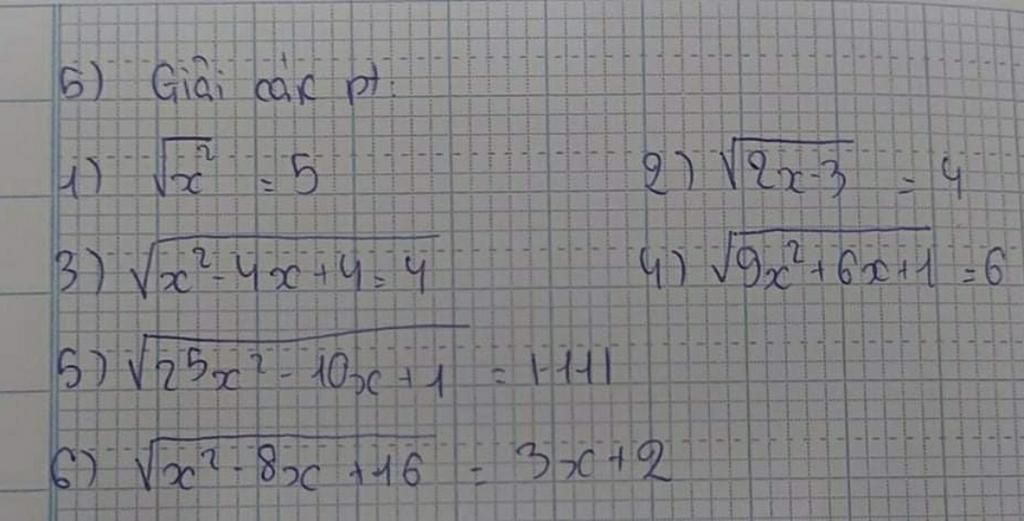 5) Giải các pt:
1) √x² = 5 2) √2x-3 = 4
3) √x²-4x+4=4 4) √9x²+6x+1 = 6
5) √25x²-10x+1 = |-11|
6) √x²-8x+16 = 3x+2